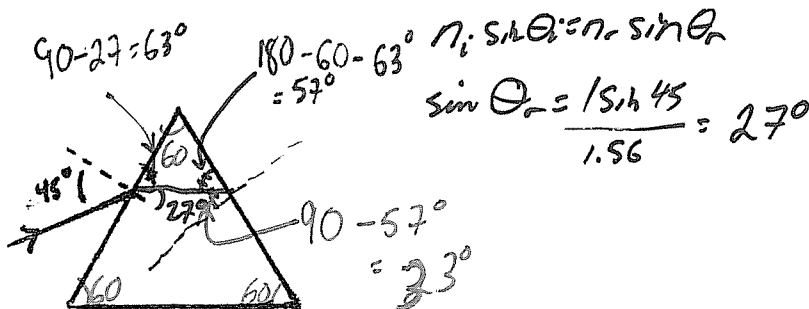 90-27=63°
180-60-63°
= 57°
nᵢ sin θᵢ = nᵣ sin θᵣ
sin θᵣ = 1 sin 45 / 1.56 = 27°
60
45°
27°
90-57°
= 23°
60
60